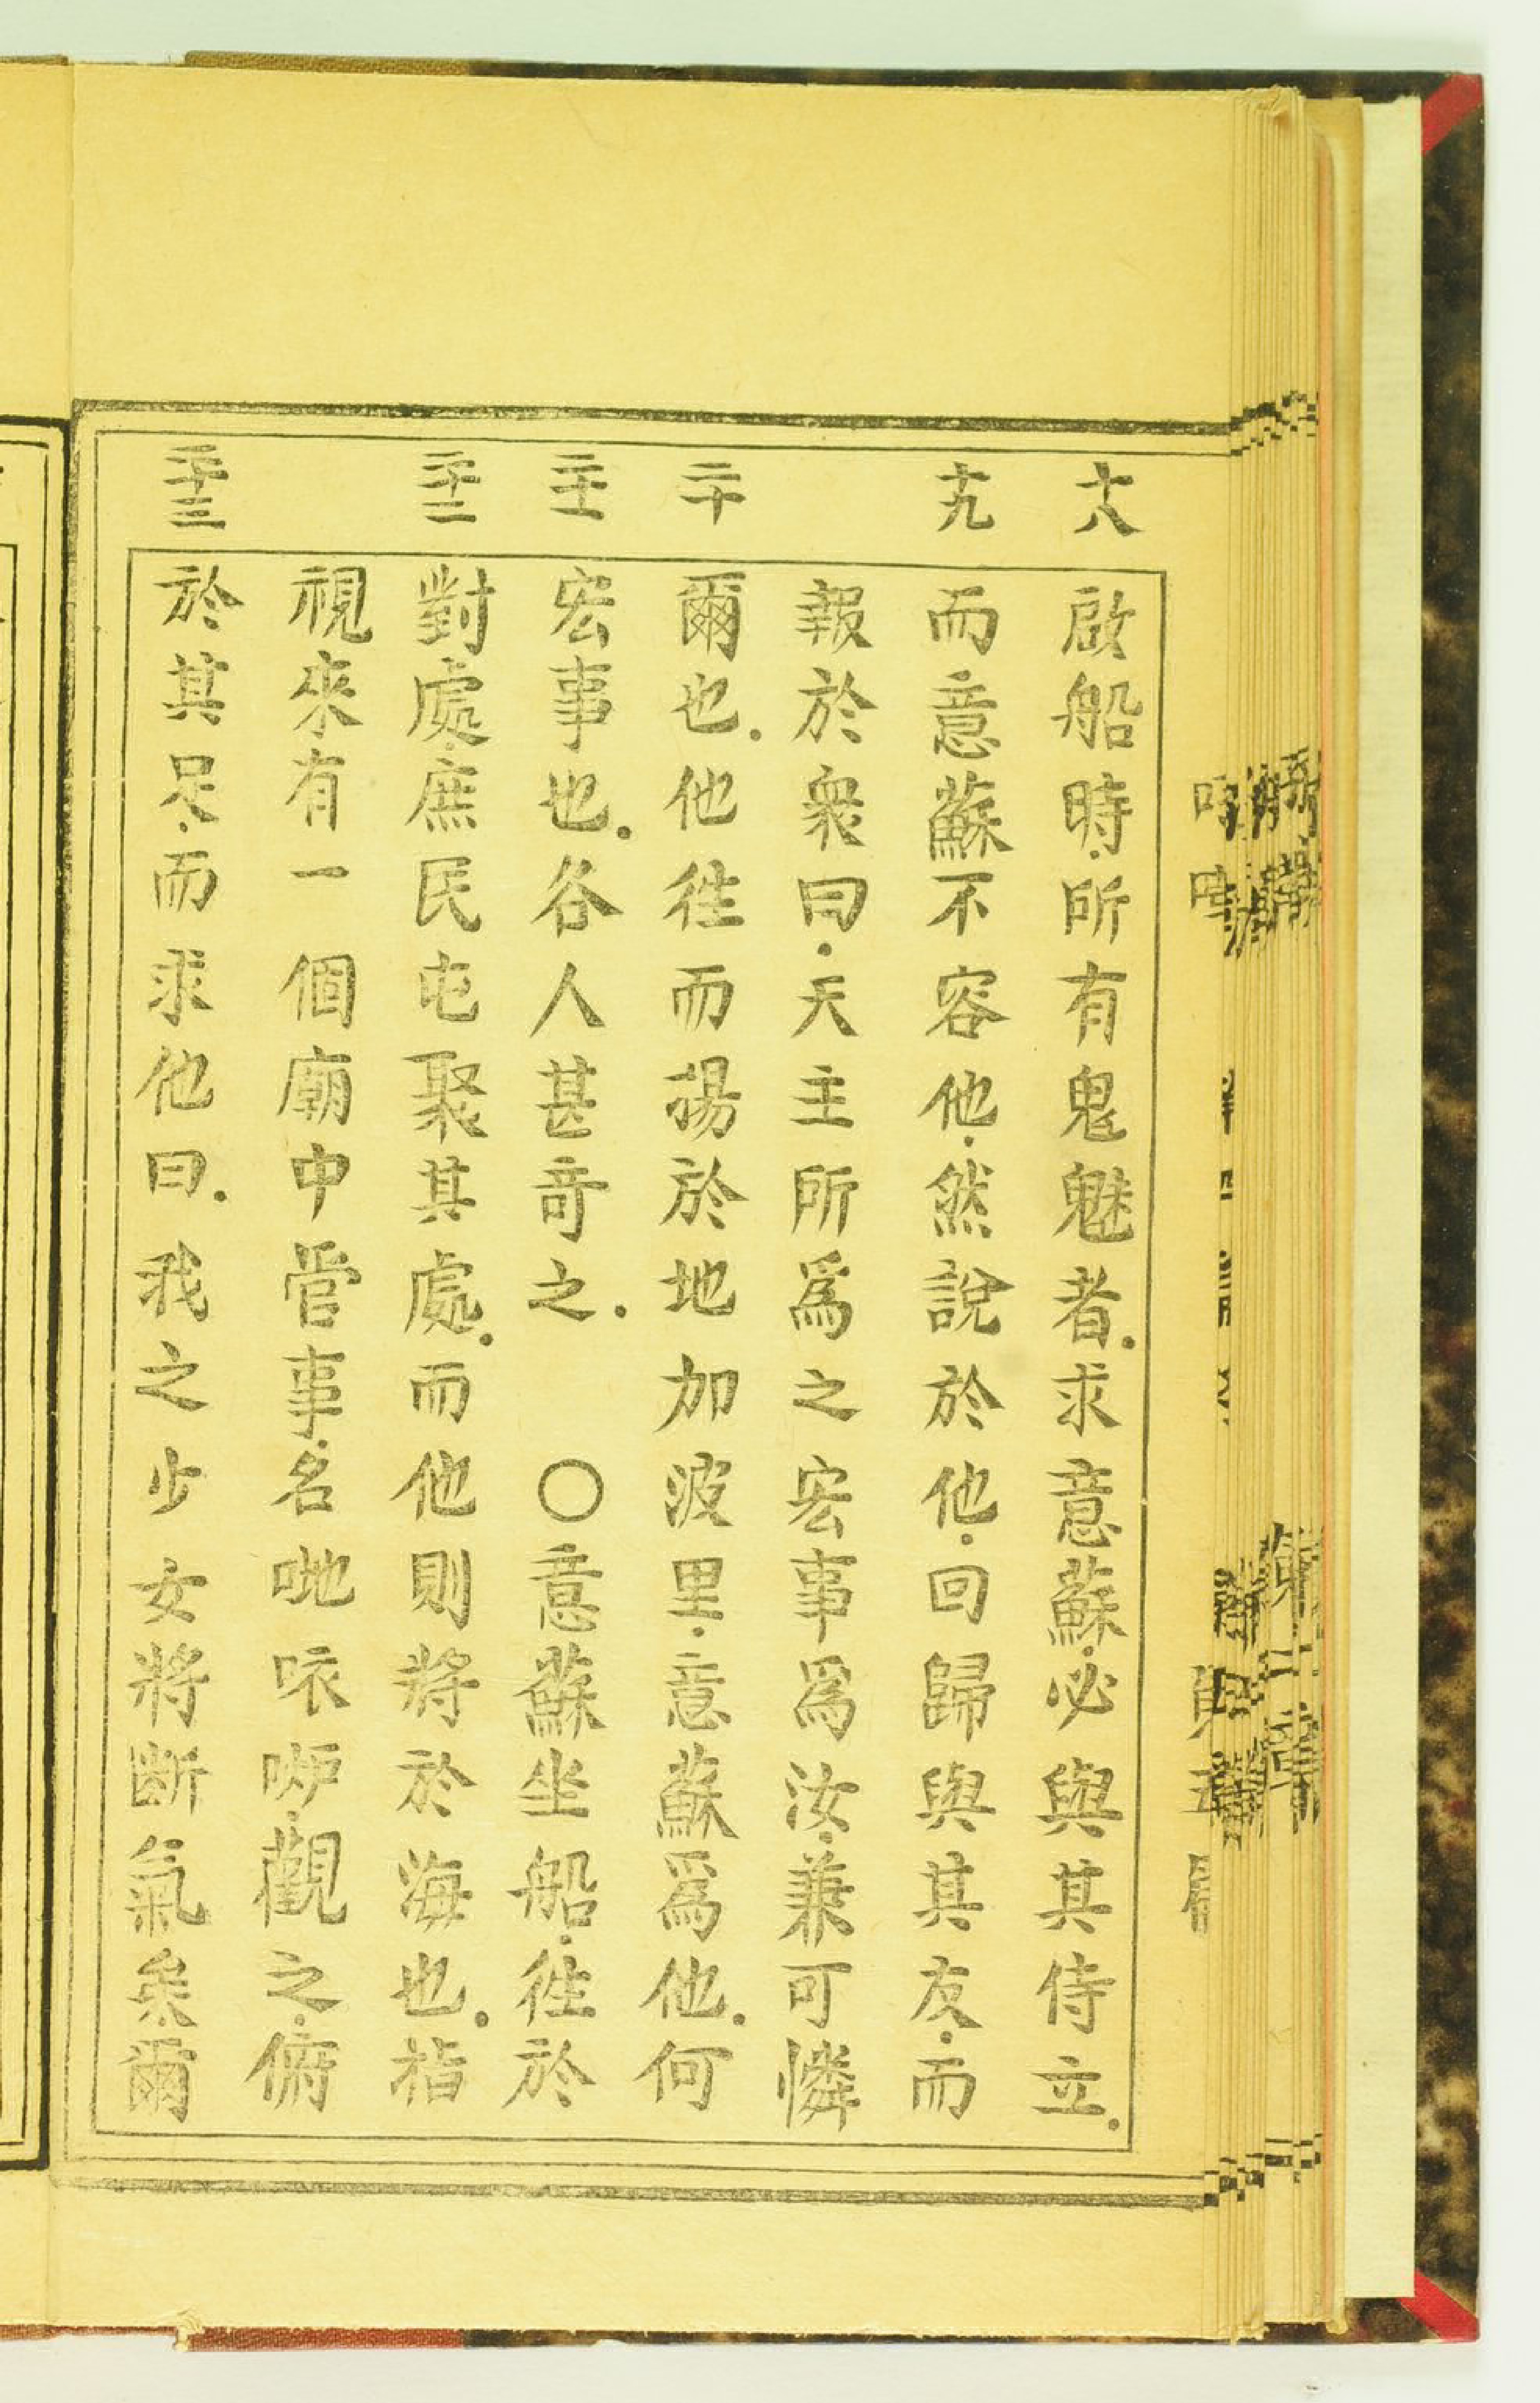 十八
啟船時.所有鬼魅者.求意蘇.必與其侍立.
十九
而意蘇不容他.然說於他.回歸與其友.而
報於衆曰.天主所爲之宏事爲汝.兼可憐
二十
爾也.他徃而揚於地加波里.意蘇爲他.何
二十一
宏事也.各人甚竒之.〇意蘇坐船.徃於
二十二
對處.庶民屯聚其處.而他則將於海也.㫖
視來有一個廟中管事.名𠲖㕈嘑.觀之.俯
二十三
於其足.而求他曰.我之少女將斷氣矣.爾